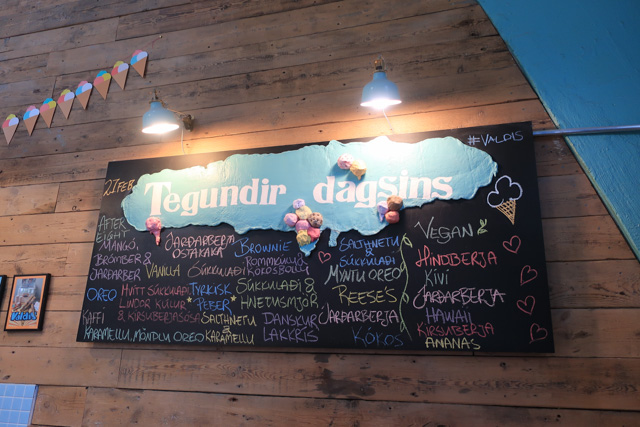 #VALDIS
21 FEB
Tegundir dagsins
AFTER
EIGHT
MANGÓ,
BRÓMBER &
JARÐARBER
OREO
KAFFI
KARAMELLU, MÖNDLU OREO
JARÐARBERJA
OSTAKAKA
VANILLA
SÚKKULAÐI
HVÍTT SÚKKULAÐI
LINDOR KÚLUR
& KIRSUBERJASÓSA
TYRKISK
PEBER
SALTHNETU
&
KARAMELLU
BROWNIE
ROMMKÚLU
KÓKOSBOLLU
SÚKKULAÐI &
HNETUSMJÖR
DANSKUR
LAKKRÍS
SALTHNETU
&
SÚKKULAÐI
MYNTU OREO
REESE'S
JARÐARBERJA
KÓKOS
VEGAN
HINDBERJA
KIVI
JARÐARBERJA
HAWAII
KIRSUBERJA
ANANAS
Valdís